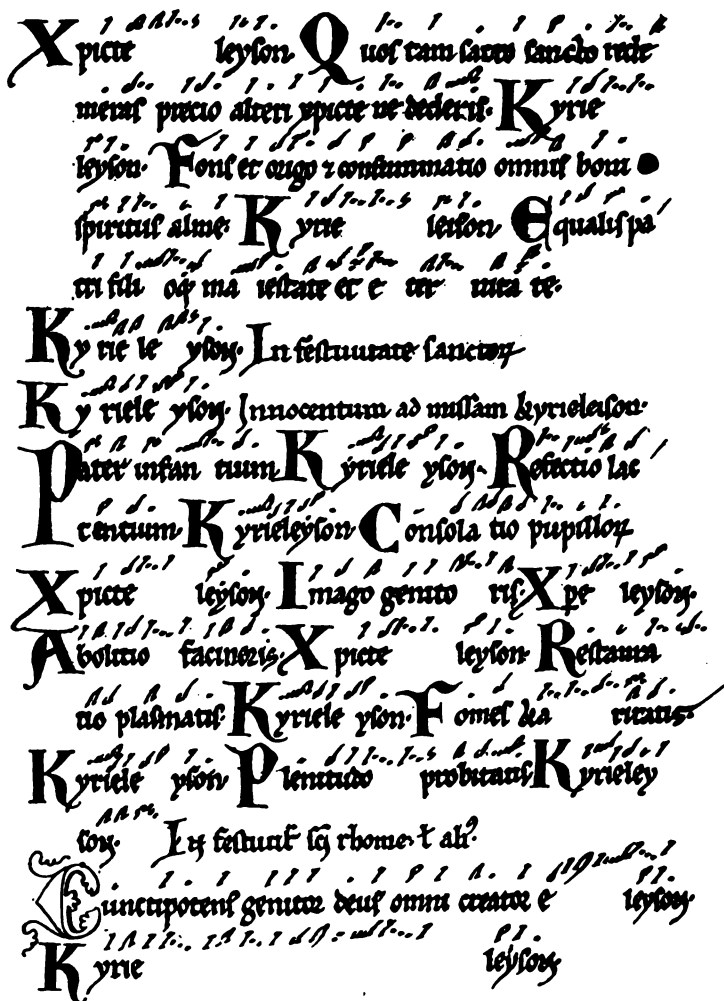 Xpicte leyson. Quos tam sacro sancto rede
meras precio alteri xpicte ne dederis. Kyrie
leyson. Fons et origo ⁊ consummatio omnis boni
spiritus alme. Kyrie leison Equalis pa
tri fili oq; ma iestate et e ter nita te.
Kyrie le yson. In festiuitate sanctoꝝ
Kyriele yson. Innocentum ad missam kyrieleison.
Pater infan tium Kyriele yson. Refectio lac
tentium. Kyrieleyson Consola tio pupilloꝝ
Xpicte leyson. Imago genito ris. Xpe leyson.
Abolitio facineris. Xpicte leyson Restaura
tio plasmatis. Kyriele yson. Fomes ka ritatis.
Kyriele yson Plenitudo probitatis. Kyrieley
son. In festiuit sci thome. t ali
Cunctipotens genitor deus omni creator e leyson
Kyrie leyson